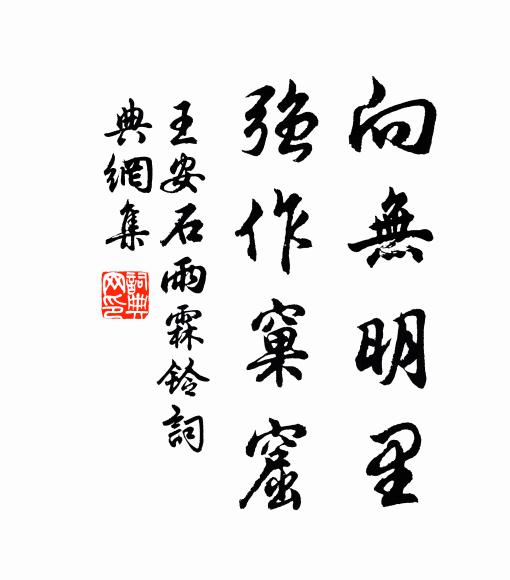 向無明里
強作窠窟
王安石雨霖鈴詞
典網集
詞典
網印